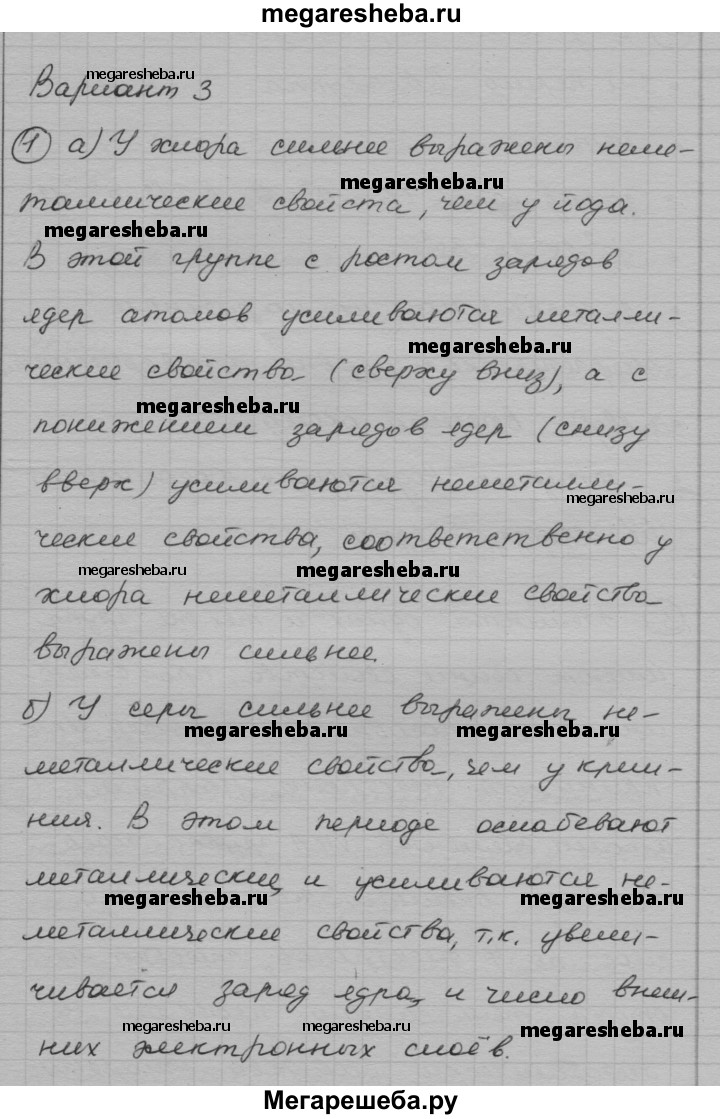 megaresheba.ru
megaresheba.ru
Вариант 3
① а) У хлора сильнее выражены неме-
megaresheba.ru
таллические свойста, чем у йода.
megaresheba.ru
В этой группе с ростом зарядов
ядер атомов усиливаются металли-
megaresheba.ru
ческие свойства (сверху вниз), а с
megaresheba.ru
понижением зарядов ядер (снизу
вверх) усиливаются неметалли-
megaresheba.ru
ческие свойства, соответственно у
megaresheba.ru megaresheba.ru
хлора неметаллические свойства
выражены сильнее.
б) У серы сильнее выражены не-
megaresheba.ru megaresheba.ru
металлические свойства, чем у крем-
ния. В этом периоде ослабевают
металлические и усиливаются не-
megaresheba.ru megaresheba.ru
металлические свойства, т.к. увели-
чивается заряд ядра и число внеш-
megaresheba.ru megaresheba.ru megaresheba.ru
них электронных слоёв.
Мегарешеба.ру